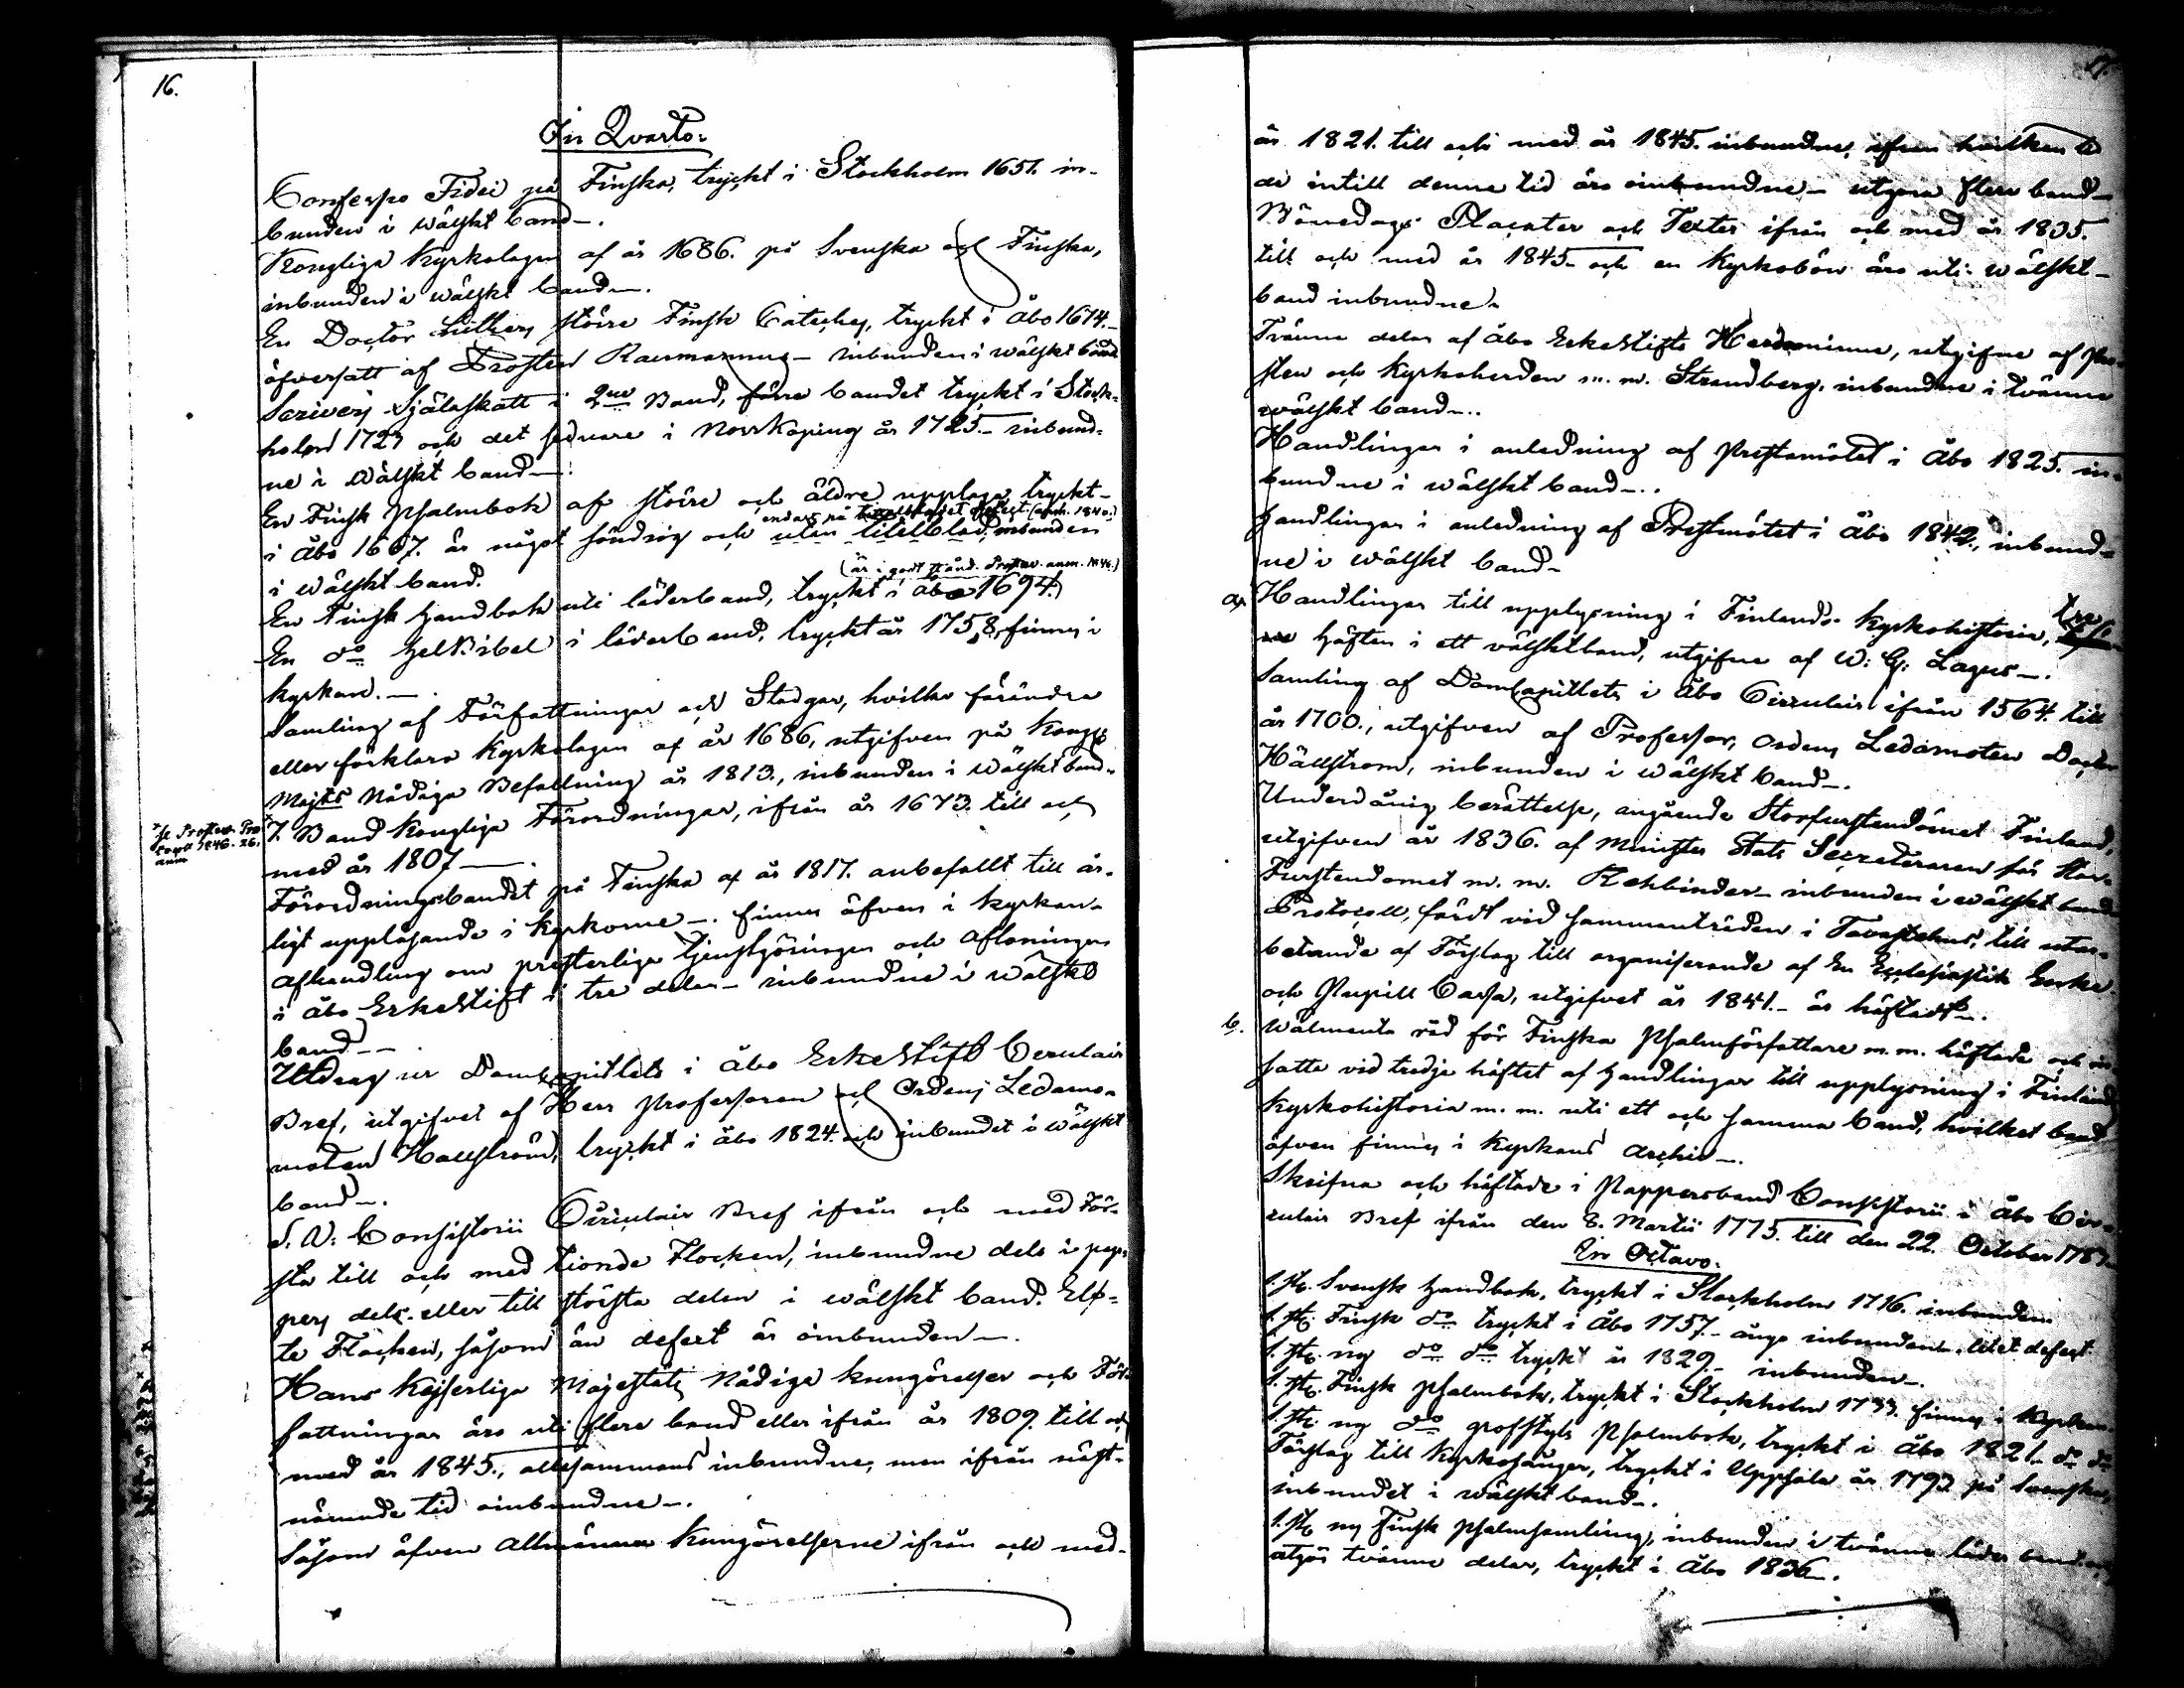 16.
In Qvarto:
Confessio Fidei på Finska, tryckt i Stockholm 1651. in-
bunden i wälskt band-.
Kongliga Kyrkolagen af år 1686. på Svenska och Finska,
inbunden i wälskt band-.
En Doctor Luthers större Finsk Cateches, tryckt i Åbo 1674.-
öfversatt af Prosten Raumannus- inbunden i wälskt band
Scrivers Själaskatt i 2ne Band, förre bandet tryckt i Stock-
holm 1723 och det sednare i Norrköping år 1725.- inbund-
ne i wälskt band-.
En Finsk Psalmbok af större och äldre upplaga tryckt-
endast på titelbladet defect (anm. 1840.)
i Åbo 1667. är något söndrig och utan titelblad, inbunden
i wälskt band.
(är i godt stånd. anm. 1846.)
En Finsk Handbok uti läderband, tryckt i Åbo 1694.
En do Hel Bibel i läderband, tryckt år 1758, finnes i
kyrkan.-.
Samling af Författningar och Stadgar, hvilka förändra
eller förklara Kyrkolagen af år 1686, utgifven på Kongl.
Majts Nådiga Befallning år 1813., inbunden i wälskt band.
x 7. Band Kongliga Förordningar, ifrån år 1673. till och
x se 1846. 26.
anm
med år 1807-.
Förordningsbandet på Finska af år 1817. anbefallt till år-
ligt uppläsande i kyrkorne-. finnes äfven i kyrkan-
Afhandling om presterliga tjenstgöringen och Aflöningen
i Åbo Erkestift i tre delar- inbundne i wälskt
band--.
Utdrag ur Domkapitlets i Åbo Erkestift Cerculair
Bref, utgifvet af Herr Professoren och Ordens Ledamo-
moten Hällström, tryckt i Åbo 1824. och inbundet i wälskt
band-.
S. V. Consistorii Circulair Bref ifrån och med För-
sta till och med tionde Flocken, inbundne dels i pap-
pers dels- eller till största delen i wälskt band. Elf-
te Flocken, såsom än defect är oinbunden-.
Hans Kejserliga Majestäts Nådiga kungörelser och För-
fattningar äro uti flere band eller ifrån år 1809. till och
med år 1845., allesammans inbundne, men ifrån näst-
nämnde tid oinbundne-.
Såsom äfven Allmänna Kungörelserne ifrån och med-
17.
år 1821. till och med år 1845. inbundne, ifrån hvilken tid
de intill denne tid äro oinbundne- utgöra flere band-
Bönedags Placater och Texter ifrån och med år 1805.
till och med år 1845- och en Kyrkobön äro uti wälskt-
band inbundne-
Tvänne delar af Åbo Erkestifts Herdaminne, utgifne af Pro-
sten och Kyrkoherden m. m. Strandberg. inbundne i tvänne
wälskt band-..
Handlingar i anledning af Prestamötet i Åbo 1825. in-
bundne i wälskt band-..
Handlingar i anledning af Prestmötet i Åbo 1842., inbund-
ne i wälskt band-
a. Handlingar till upplysning i Finlands Kyrkohistoria, tre
häften i ett välsktband, utgifne af W. G. Lagus-.
Samling af Domkapitlets i Åbo Cirkulair ifrån 1564. till
år 1700., utgifven af Professor, Ordens Ledamoten Doctor
Hällstrom, inbunden i wälskt band-.
Underdånig berättelse, angående Storfurstendömet Finland,
utgifven år 1836. af Minister Stats Secreteraren för Stor-
Furstendömet m. m. Rehbinder- inbunden i wälskt band
Protocoll, fördt vid sammanträden i Tavastehus, till utar-
betande af Förslag till organiserande af En Ecclesiastik Enke-
och Pupill Cassa, utgifvet år 1841.- är häftadt-.
b. Wälmenta råd för Finska Psalmförfattare m. m. häftade och in-
satte vid tredje häftet af Handlingar till upplysning i Finlands
Kyrkohistoria m. m. uti ett och samma band, hvilket band
äfven finnes i Kyrkans Archiv-.
Skrifna och häftade i Pappersband Consistorii i Åbo Cir-
culair Bref ifrån den 8. Martii 1775. till den 22. October 1783.
In Octavo.
1. st. Svensk Handbok, tryckt i Stockholm 1716. inbunden
1. st. Finsk do tryckt i Åbo 1757.- ånyo inbunden. litet defect
1. st. ny do do tryckt år 1829.- inbunden-.
1. st. Finsk psalmbok, tryckt i Stockholm 1733. finnes i Kyrkan.
1. st. ny do grofstyls Psalmbok, tryckt i Åbo 1821. do do
Förslag till Kyrkosånger, tryckt i Uppsala år 1793 på Svenska,
inbundet i wälskt band-.
1. st. ny Finsk psalmsamling, inbunden i tvänne läder band och
utgör tvänne delar, tryckt i Åbo 1836-.